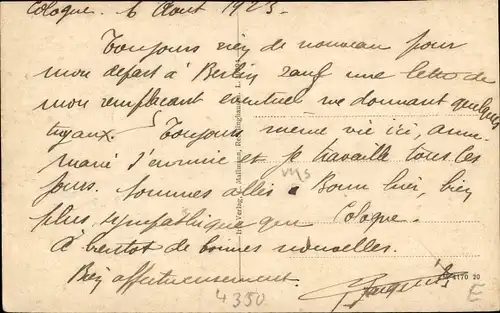 Cologne. 6 Août 1923.
Toujours rien de nouveau pour
mon départ à Berlin sauf une lettre de
mon remplaçant éventuel me donnant quelques
tuyaux. Toujours même vie ici, anne-
marie s'ennuie et je travaille tous les
jours. Sommes allés à Bonn hier, bien
plus sympathique que Cologne.
A bientot de bonnes nouvelles.
Bien affectueusement.
4350
4170 20
E